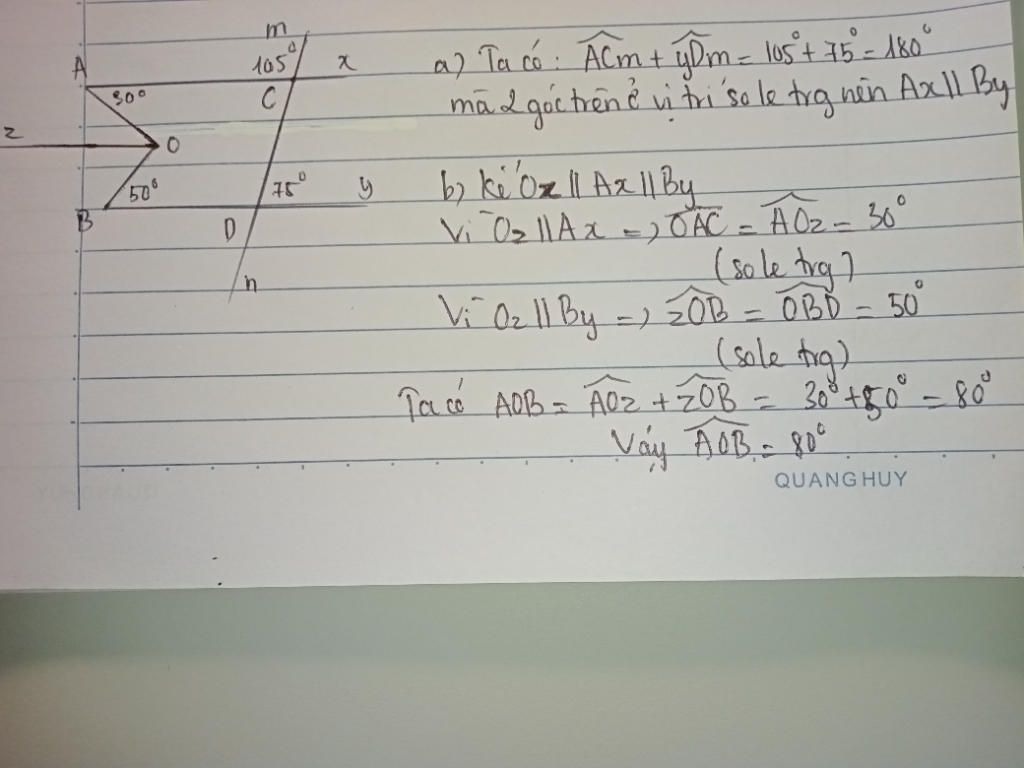 m
105° x
A
30° C
z O
50° 75° y
B D
n
a) Ta có: ACm + yDm = 105° + 75° = 180°
mà 2 góc trên ở vị trí so le trg nên Ax // By
b) kẻ Oz // Ax // By
Vì Oz // Ax => OAC = AOz = 30°
(so le trg)
Vì Oz // By => zOB = OBD = 50°
(so le trg)
Ta có AOB = AOz + zOB = 30° + 50° = 80°
Vậy AOB = 80°
QUANG HUY